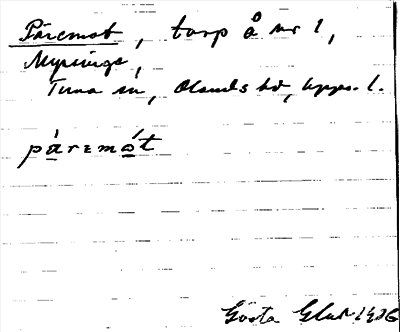 Päremot, torp å nr 1,
Myringe,
Tuna sn, Olands hd, Upps. l.
pà̱rɛmó̱t
Gösta 1936